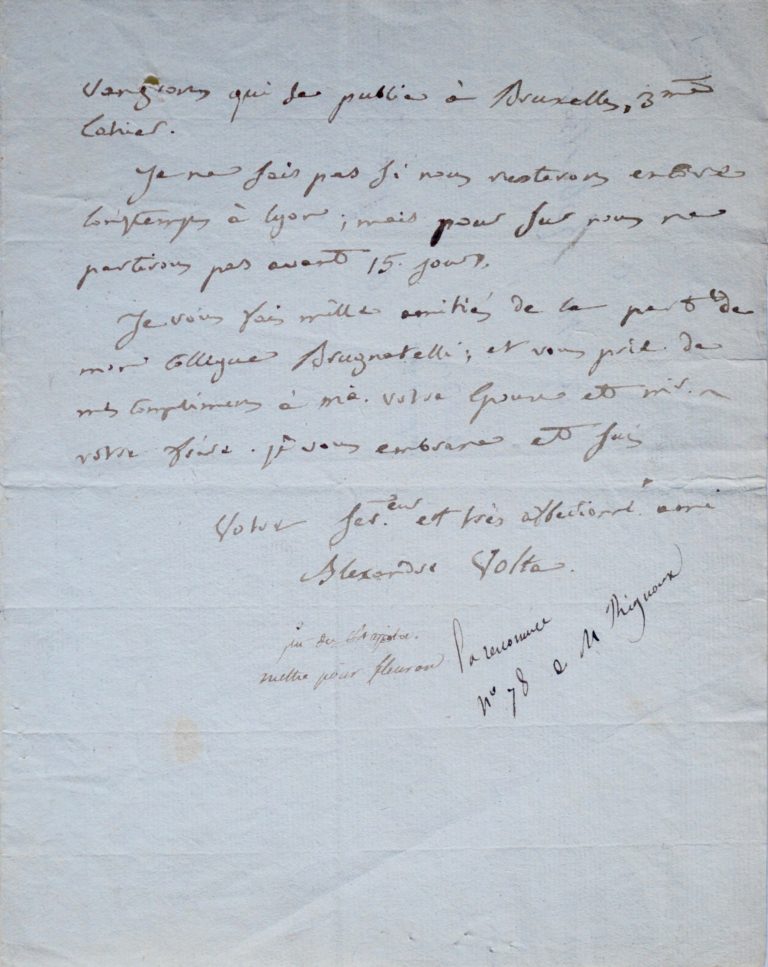 qui se publie à Bruxelles, 3me
Cahier.
Je ne sais pas si nous resterons encore
longtemps à Lyon; mais pour sur nous ne
partirons pas avant 15. jours.
Je vous fais mille amitiés de la part de
mon Collegue Brugnatelli; et vous prie de
mes complimens à me. votre Epouse et mr.
votre frère. je vous embrasse et suis
Votre Ser.eur et très affectionné ami
Alexandre Volta.
fin du
mettre pour fleuron la renommée
n° 78 de M Thignoux